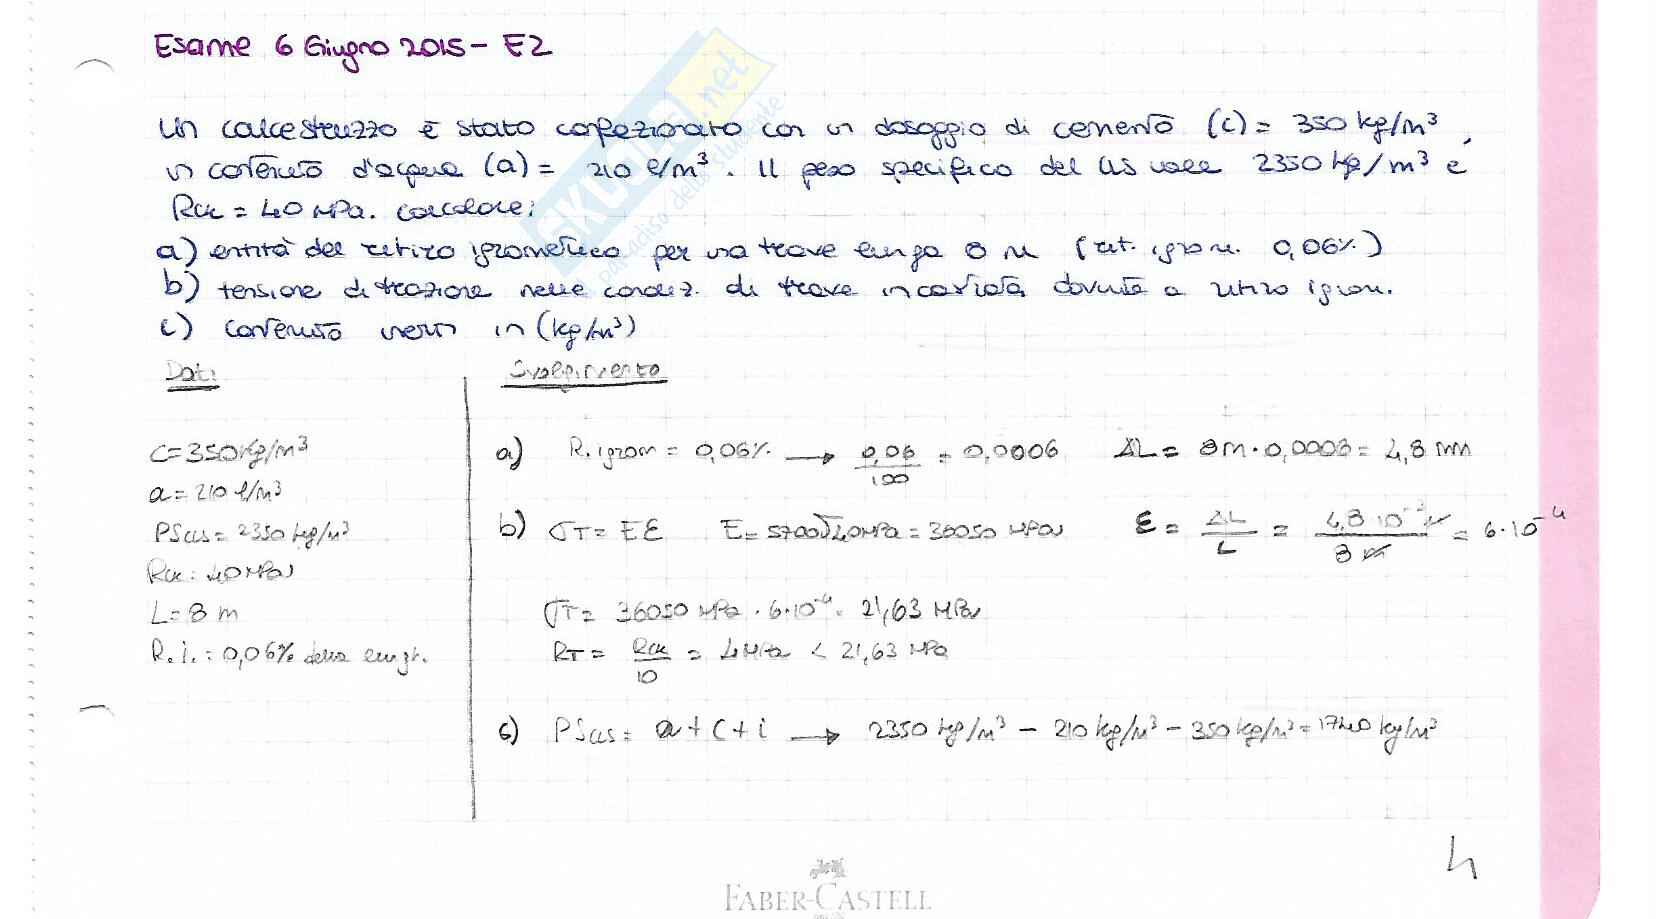 Esame 6 Giugno 2015 - E2
Un calcestruzzo è stato confezionato con un dosaggio di cemento (c) = 350 kg/m³,
un contenuto d'acqua (a) = 210 l/m³. Il peso specifico del cls vale 2350 kg/m³ e
Rck = 40 MPa. calcolare:
a) entità del ritiro igrometrico per una trave lunga 8 m (rit. igrom. 0,06%)
b) tensione di trazione nelle condiz. di trave incastrata dovuta a ritiro igrom.
c) contenuto inerti in (kg/m³)
Dati
Svolgimento
C=350kg/m³
a = 210 l/m³
PScls = 2350 kg/m³
Rck: 40MPa
L=8 m
R.i.: 0,06% della lungh.
a) R.igrom = 0,06% → 0,06/100 = 0,0006 ΔL = 8m · 0,0006 = 4,8 mm
b) σT = Eε E = 5700√40MPa = 36050 MPa ε = ΔL/L = 4,8·10⁻³m/8m = 6·10⁻⁴
σT = 36050 MPa · 6·10⁻⁴ = 21,63 MPa
RT = Rck/10 = 4MPa < 21,63 MPa
c) PScls = a + c + i → 2350 kg/m³ - 210 kg/m³ - 350 kg/m³ = 1740 kg/m³
4
FABER-CASTELL
SKUOLA.net
il paradiso dello studente